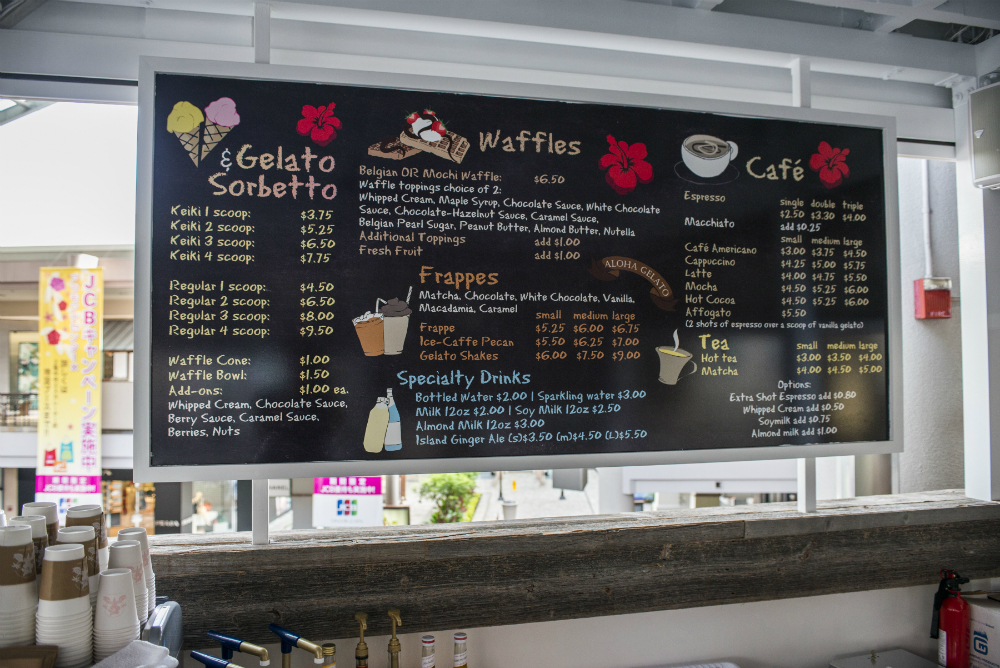 & Gelato
Sorbetto
Keiki 1 scoop: $3.75
Keiki 2 scoop: $5.25
Keiki 3 scoop: $6.50
Keiki 4 scoop: $7.75
Regular 1 scoop: $4.50
Regular 2 scoop: $6.50
Regular 3 scoop: $8.00
Regular 4 scoop: $9.50
Waffle Cone: $1.00
Waffle Bowl: $1.50
Add-ons: $1.00 ea.
Whipped Cream, Chocolate Sauce,
Berry Sauce, Caramel Sauce,
Berries, Nuts
Waffles
Belgian OR Mochi Waffle: $6.50
Waffle toppings choice of 2:
Whipped Cream, Maple Syrup, Chocolate Sauce, White Chocolate
Sauce, Chocolate-Hazelnut Sauce, Caramel Sauce,
Belgian Pearl Sugar, Peanut Butter, Almond Butter, Nutella
Additional Toppings add $1.00
Fresh Fruit add $1.00
ALOHA GELATO
Frappes
Matcha, Chocolate, White Chocolate, Vanilla,
Macadamia, Caramel
small medium large
Frappe $5.25 $6.00 $6.75
Ice-Caffe Pecan $5.50 $6.25 $7.00
Gelato Shakes $6.00 $7.50 $9.00
Specialty Drinks
Bottled Water $2.00 | Sparkling water $3.00
Milk 12oz $2.00 | Soy Milk 12oz $2.50
Almond Milk 12oz $3.00
Island Ginger Ale (s)$3.50 (m)$4.50 (L)$5.50
Café
single double triple
Espresso $2.50 $3.30 $4.00
Macchiato add $0.25
small medium large
Café Americano $3.00 $3.75 $4.50
Cappuccino $4.25 $5.00 $5.75
Latte $4.00 $4.75 $5.50
Mocha $4.50 $5.25 $6.00
Hot Cocoa $4.50 $5.25 $6.00
Affogato $5.50
(2 shots of espresso over a scoop of vanilla gelato)
Tea
small medium large
Hot tea $3.00 $3.50 $4.00
Matcha $4.00 $4.50 $5.00
Options:
Extra Shot Espresso add $0.80
Whipped Cream add $0.50
Soymilk add $0.75
Almond milk add $1.00
JCBキャンペーン実施中
JCB
JCB
FIRE